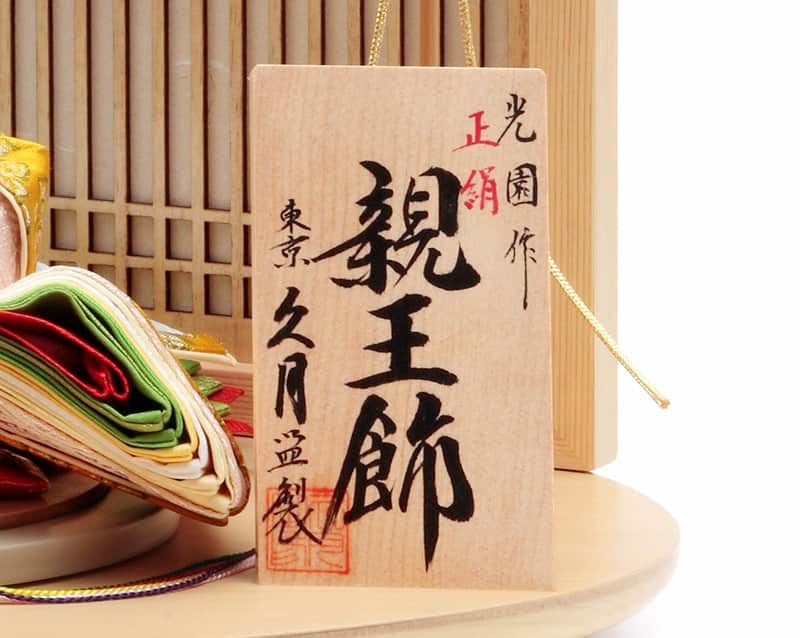 光園作
正絹
親王飾
東京久月監製